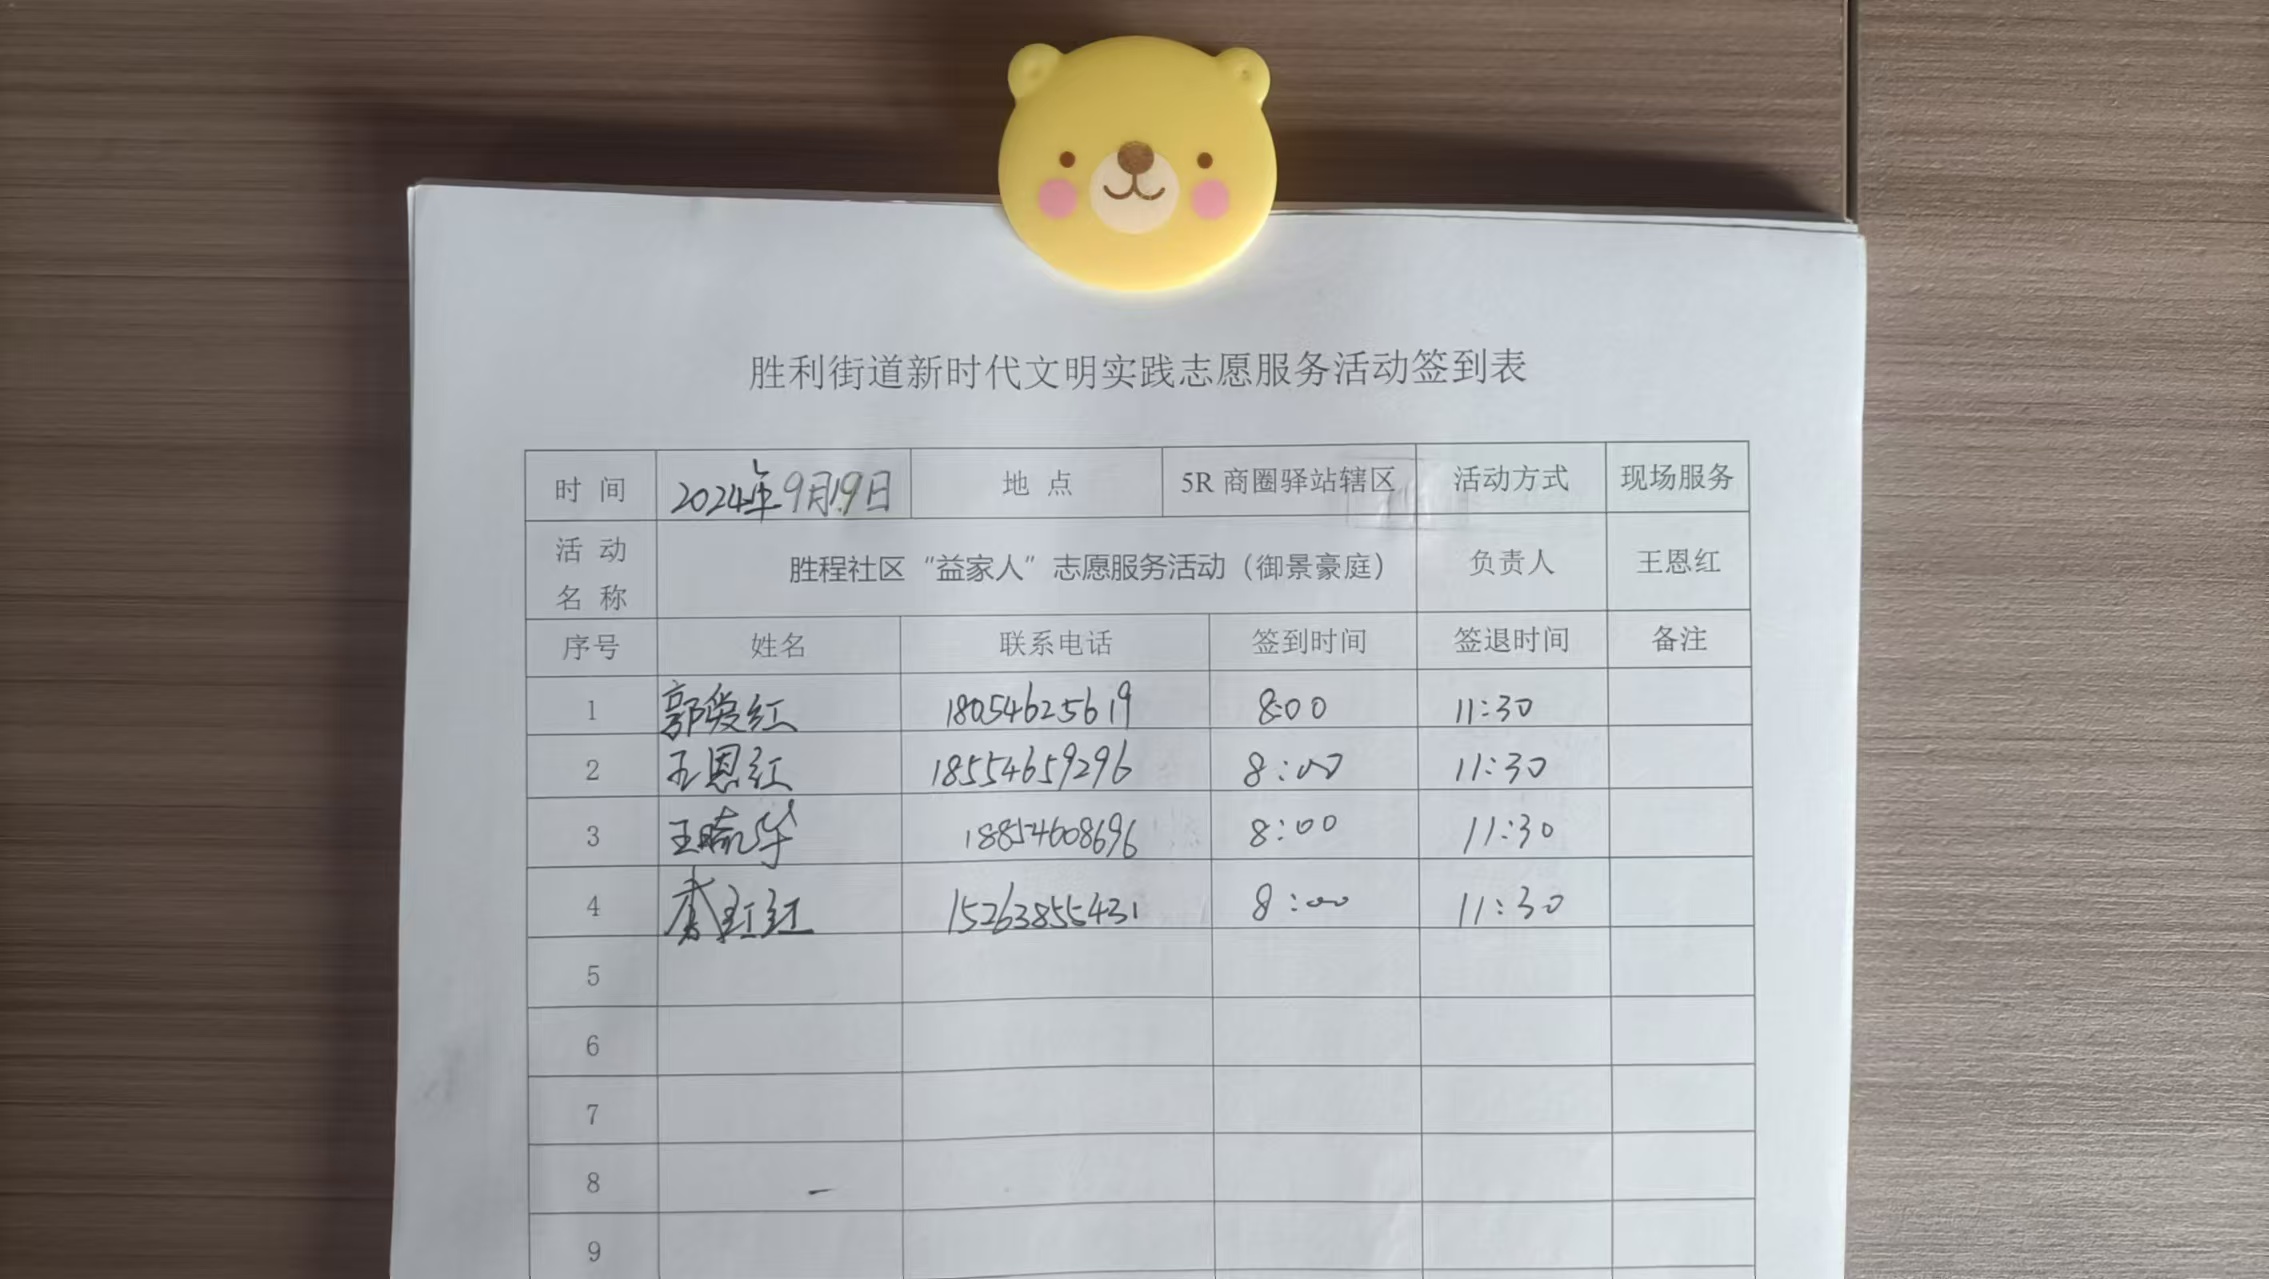 胜利街道新时代文明实践志愿服务活动签到表
时 间 2024年9月19日 地 点 5R 商圈驿站辖区 活动方式 现场服务
活 动
名 称 胜程社区“益家人”志愿服务活动（御景豪庭） 负责人 王恩红
序号 姓名 联系电话 签到时间 签退时间 备注
1 郭爱红 18054625619 8:00 11:30
2 王恩红 18554659296 8:00 11:30
3 王晓华 18854608696 8:00 11:30
4 15263855431 8:00 11:30
5
6
7
8
9